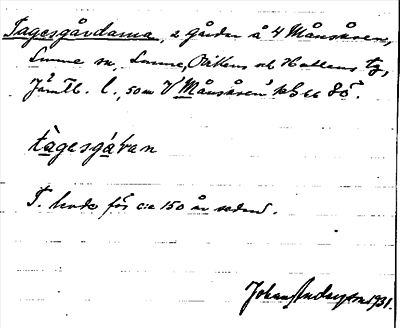 Tagesgårdarna, 2 gårdar å 4 Månsåsen,
Sunne sn, Sunne, Oviken och Hallens tg,
Jämtl. l., som V Månsåsen
tàgesgá̀ran
T. levde för c:a 150 år sedan.
Johan Anderson 1931.